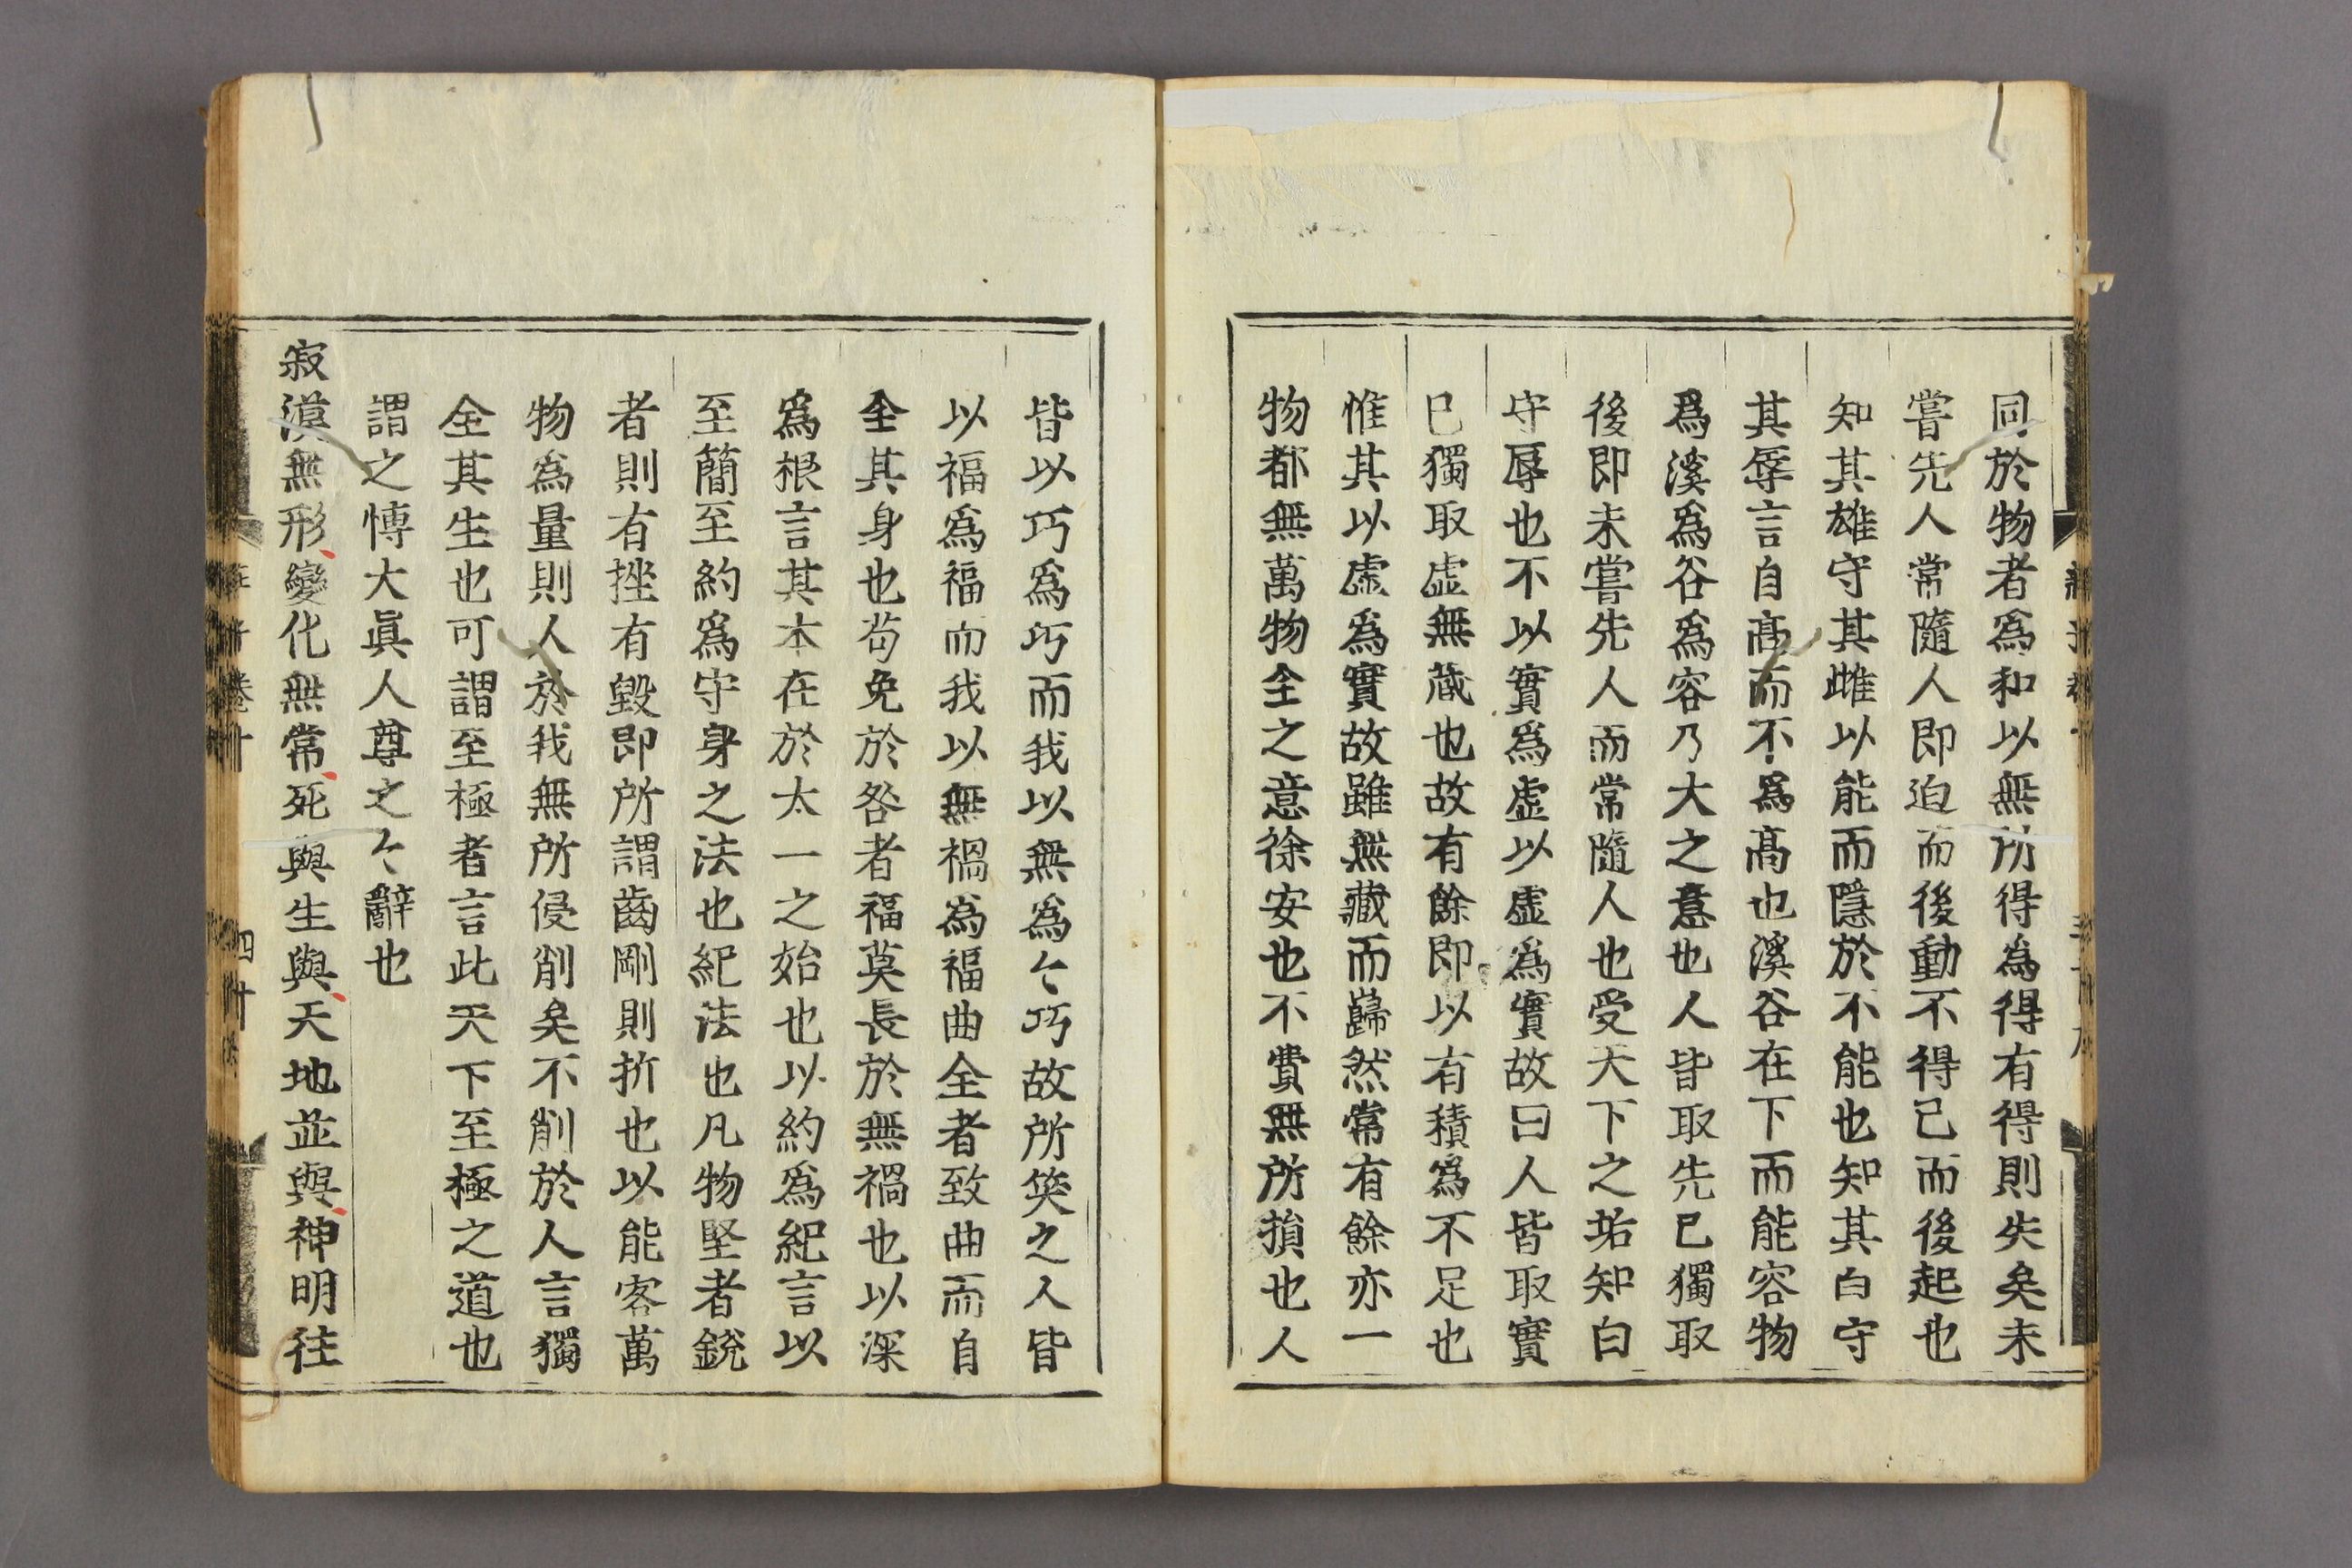 同於物者爲和以無所得為得有得則失矣未
嘗先人常隨人即迫而後動不得已而後起也
知其雄守其雌以能而隱於不能也知其白守
其辱言自髙而不爲髙也溪谷在下而能容物
爲溪爲谷爲容乃大之意也人皆取先已獨取
後即未嘗先人而常隨人也受天下之垢知白
守辱也不以實爲虚以虚爲實故曰人皆取實
已獨取虚無蔵也故有餘即以有積爲不足也
惟其以虚爲實故雖無藏而巋然常有餘亦一
物都無萬物全之意徐安也不費無所損也人
皆以巧爲巧而我以無爲々巧故所笑之人皆
以福爲福而我以無禍為福曲全者致曲而自
全其身也苟免於咎者福莫長於無禍也以深
爲根言其本在於太一之始也以約爲紀言以
至簡至約爲守身之法也紀法也凡物堅者銳
者則有挫有毀即所謂齒剛則折也以能容萬
物爲量則人於我無所侵削矣不削於人言獨
全其生也可謂至極者言此天下至極之道也
謂之愽大眞人尊之々辭也
寂漠無形變化無常死與生與天地並與神明往
莊子卷十
四十